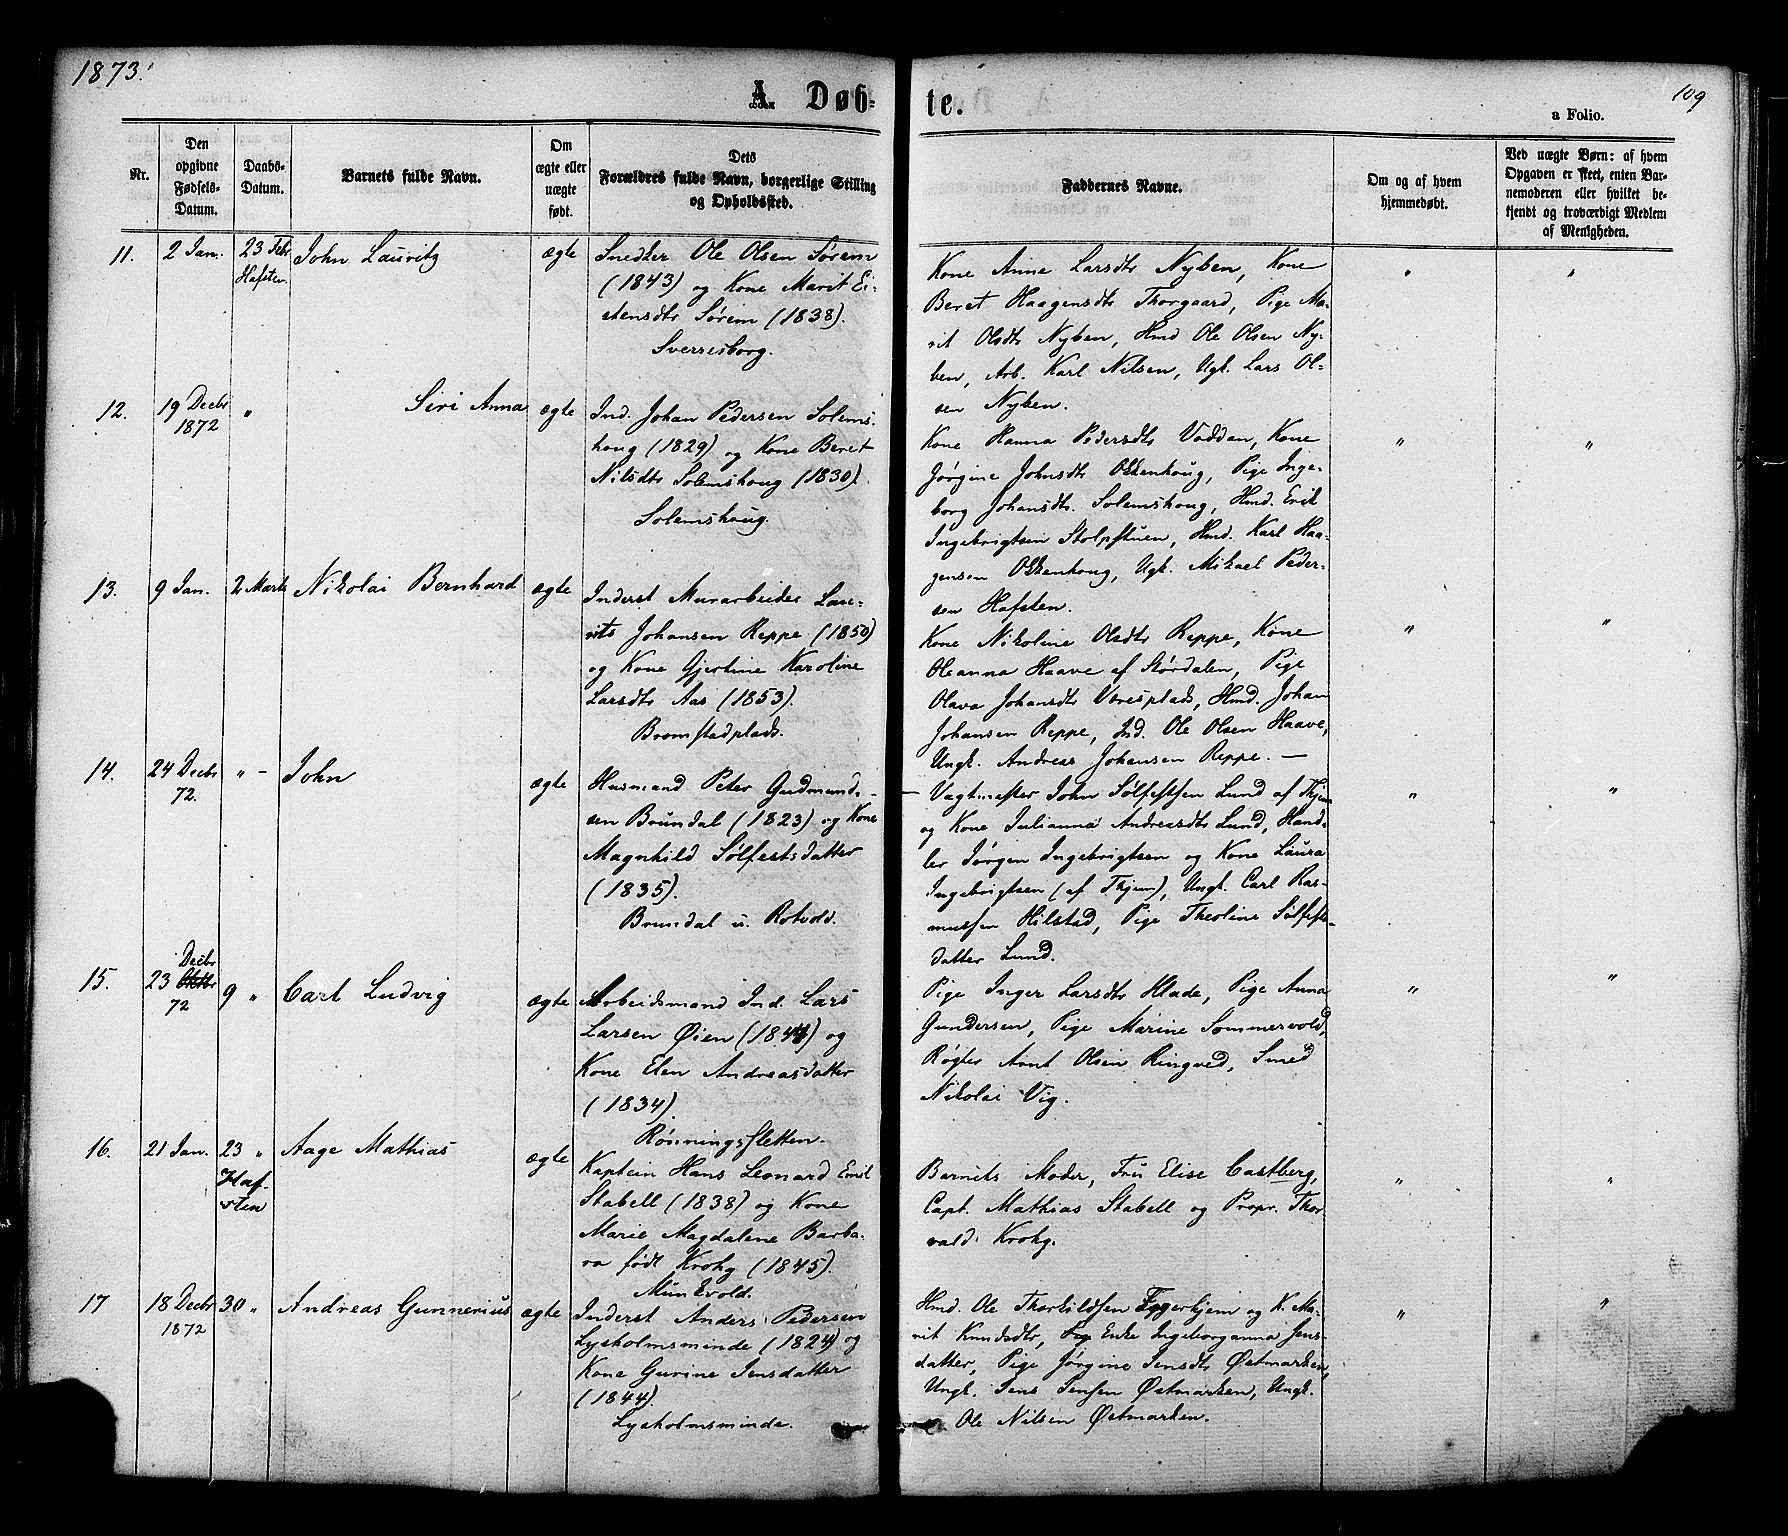 1873.
A Døb-
te.
109
a Folio.
Nr.
Den
opgivne
Fødsels-
Datum.
Daabs-
Datum.
Barnets fulde Navn.
Om
ægte eller
uægte
født.
Dets
Forældres fulde Navn, borgerlige Stilling
og Opholdssted.
Faddernes Navne.
Om og af hvem
hjemmedøbt.
Ved uægte Børn: af hvem
Opgaven er skeet, enten Bar-
nemoderen eller hvilket be-
kjendt og troværdigt Medlem
af Menigheden.
11.
2 Jan.
23 Febr
Hafsten
John Lauritz
ægte
Snedker Ole Olsen Sörem
(1843) og Kone Marit Ei-
stensdtr Sörem (1838).
Sverresborg.
Kone Anne Larsdtr Nyben, Kone
Beret Haagensdtr Thorgaard, Pige Ma-
rit Olsdtr Nyben, Hmd Ole Olsen Ny-
ben, Arb. Karl Nilsen, Ugk. Lars Ol-
sen Nyben.
"
"
12.
19 Decbr
1872
"
Siri Anna
ægte
Ind. Johan Pedersen Solems-
houg (1829) og Kone Beret
Nilsdtr Solemshoug (1830).
Solemshoug.
Kone Hanna Pedersdtr Vaddan, Kone
Jørgine Johnsdtr Okkenhoug, Pige Inge-
borg Johansdtr. Solemshoug, Hmd. Erik
Ingebrigtsen Stolpstuen, Hmd. Karl Haa-
gensen Okkenhoug, Ugk. Mikael Peder-
sen Hafsten.
"
"
13.
9 Jan.
2 Marts
Nikolai Bernhard
ægte
Inderst Murarbeider Lau-
rits Johansen Reppe (1850)
og Kone Gjertine Karoline
Larsdtr Aas (1853).
Bromstadplads.
Kone Nikoline Olsdtr Reppe, Kone
Oleanna Haave af Stördalen, Pige
Olava Johansdtr Væresplads, Hmd. Johan
Johansen Reppe, Ind. Ole Olsen Haave,
Ungk. Andreas Johansen Reppe. —
"
"
14.
24 Decbr
72.
" –
John
ægte
Husmand Peter Gudmund-
sen Brundal (1823) og Kone
Magnhild Sølfestsdatter
(1835).
Brundal u. Rotvold.
— Vagtmester John Sölfestsen Lund af Thjem
og Kone Julianna Andreasdtr Lund, Hand-
ler Jörgen Ingebrigtsen og Kone Laura
Ingebrigtsen (af Thjem), Ungk. Carl Ras-
mussen Hilstad, Pige Theoline Sølfest-
datter Lund.
"
"
15.
Decbr
23 Oktbr
72
9 "
Carl Ludvig
ægte
Arbeidsmand Ind. Lars
Larsen Øien (1844) og
Kone Elen Andreasdatter
(1834).
Rönningssletten.
Pige Inger Larsdtr Hlade, Pige Anna
Gundersen, Pige Marine Sommervold,
Røgter Arnt Olsen Ringved, Smed
Nikolai Vig.
"
"
16.
21 Jan.
23 "
Haf-
sten
Aage Mathias
ægte
Kaptein Hans Leonard Emil
Stabell (1838) og Kone
Marie Magdalene Barba-
ra født Krohg (1845).
Munkvold.
Barnets Moder, Fru Elise Castberg,
Capt. Mathias Stabell og Propr. Thor-
vald Krohg.
"
"
17
18 Decbr
1872
30 "
Andreas Gunnerius
ægte
Inderst Anders Pedersen
Lysholmsminde (1824) og
Kone Gurine Jensdatter
(1844).
Lysholmsminde.
Hmd. Ole Thorkildsen Fagerhjem og K. Ma-
rit Knudsdtr, Enke Ingeborganna Jens-
datter, Pige Jörgine Jensdtr Østmarken,
Ungk. Jens Jensen Østmarken, Ungk.
Ole Nilsen Østmarken.
"
"